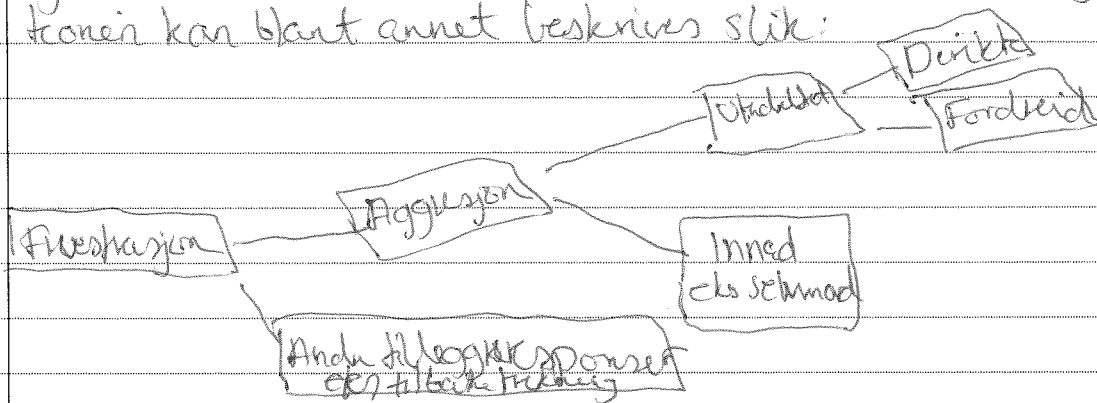 kan blant annet beskrives slik:
Direkte
Fordreid
Aggresjon
Frustrasjon
Innad
eks selvmord
Andre tilleggsresponser
eks tilbaketrekning